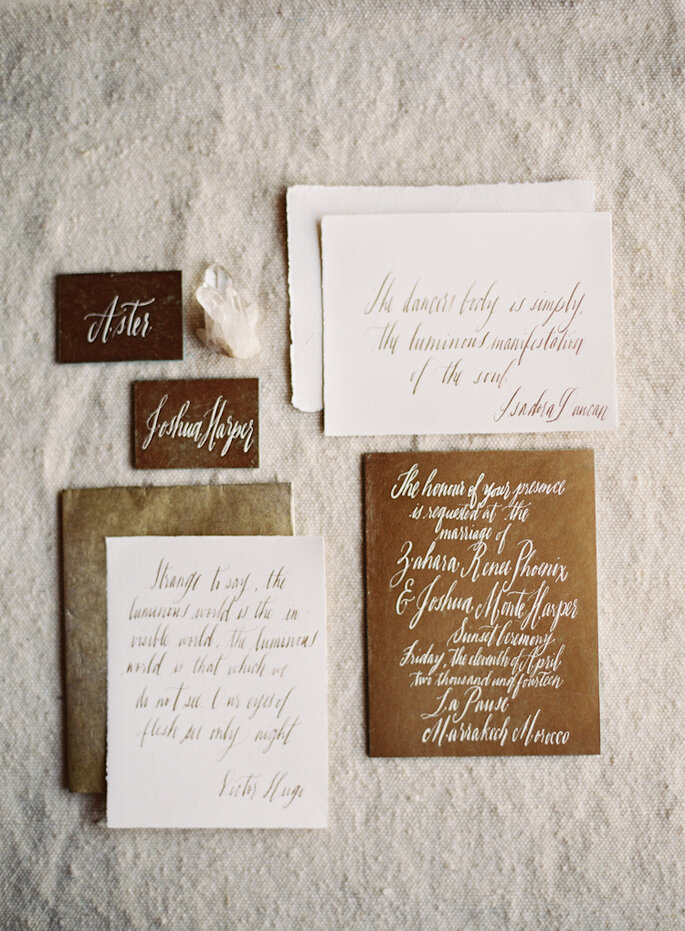 Aster
Joshua Harper
The dancers body is simply,
the luminous manifestation
of the soul.
Isadora Duncan
Strange to say, the
luminous world is the in-
visible world, the luminous
world is that which we
do not see. Our eyes of
flesh see only night
Victor Hugo
The honour of your presence
is requested at the
marriage of
Zahara Renee Phoenix
& Joshua Monte Harper
Sunset Ceremony
Friday, the eleventh of April
two thousand and fourteen
La Pause
Marrakech Morocco